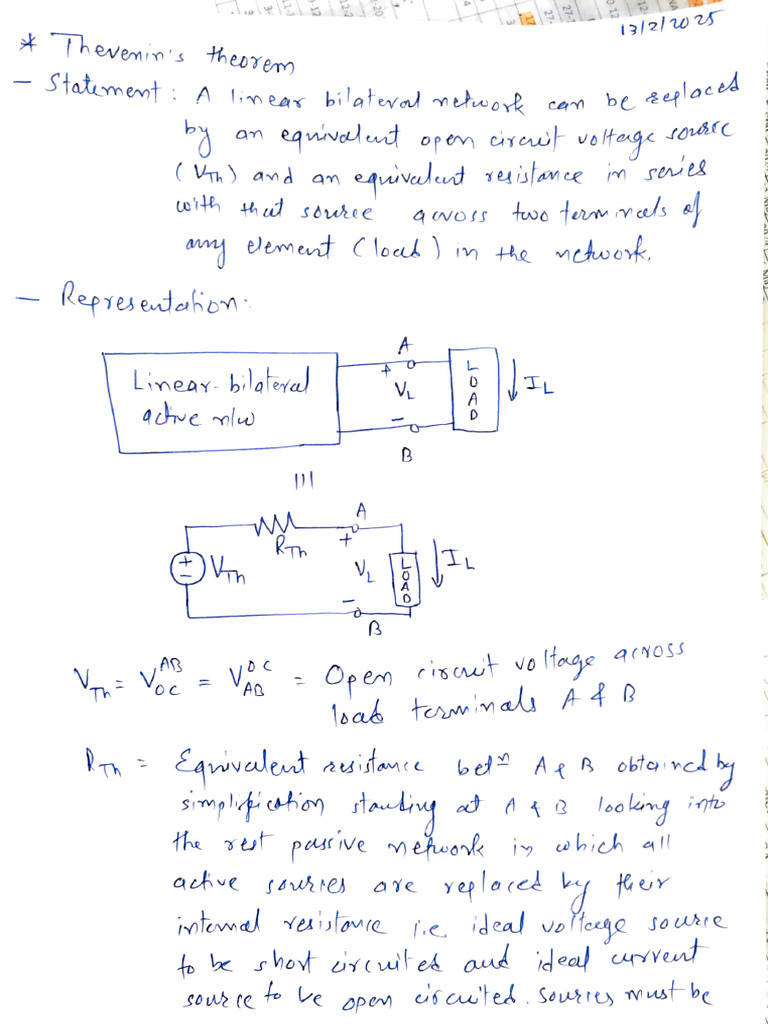 13/2/2025
* Thevenin's theorem
- Statement: A linear bilateral network can be replaced
by an equivalent open circuit voltage source
(VTh) and an equivalent resistance in series
with that source across two terminals of
any element (load) in the network.
- Representation:
A
Linear-bilateral
active n/w
+
VL
-
LOAD
IL
B
|||
A
RTh
+
VTh
VL
LOAD
IL
-
B
VTh = V_OC^AB = V_AB^OC = Open circuit voltage across
load terminals A & B
RTh = Equivalent resistance betⁿ A & B obtained by
simplification standing at A & B looking into
the rest passive network in which all
active sources are replaced by their
internal resistance i.e. ideal voltage source
to be short circuited and ideal current
source to be open circuited. Sources must be